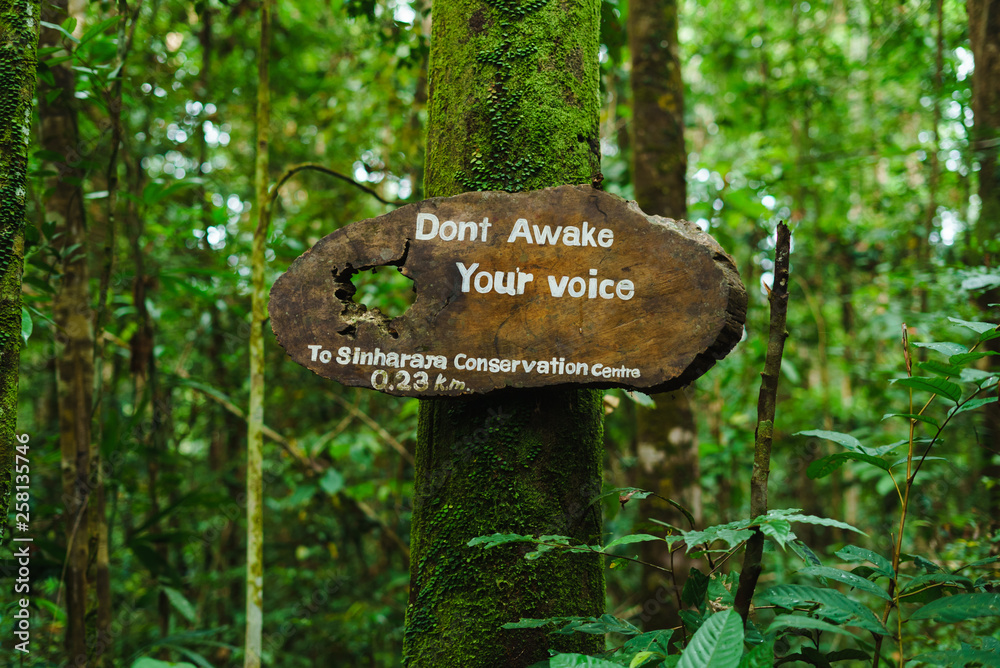 Dont Awake
Your voice
To Sinharaja Conservation Centre
0.23 km.
Adobe Stock | #258135746